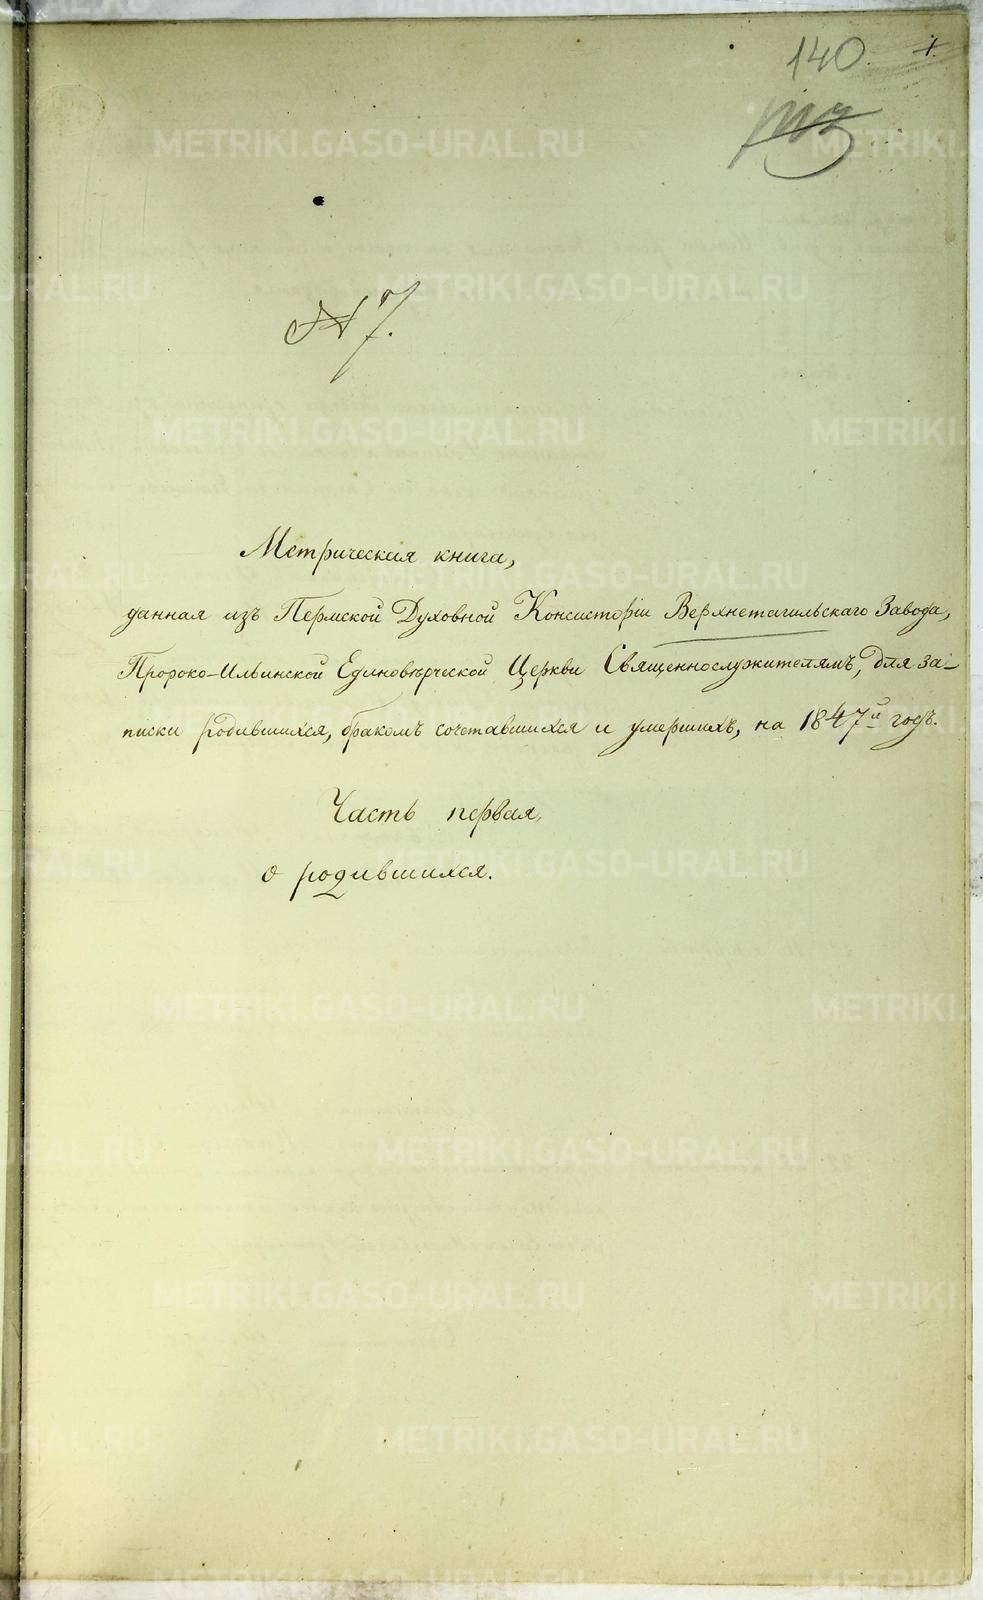 140.
1.
№ 7.
Метрическая книга,
данная изъ Пермской Духовной Консисторіи Верхнетагильскаго Завода,
Пророко-Ильинской Единовѣрческой Церкви Священнослужителямъ, для за-
писки родившихся, бракомъ сочетавшихся и умершихъ, на 1847й годъ.
Часть первая,
о родившихся.
METRIKI.GASO-URAL.RU